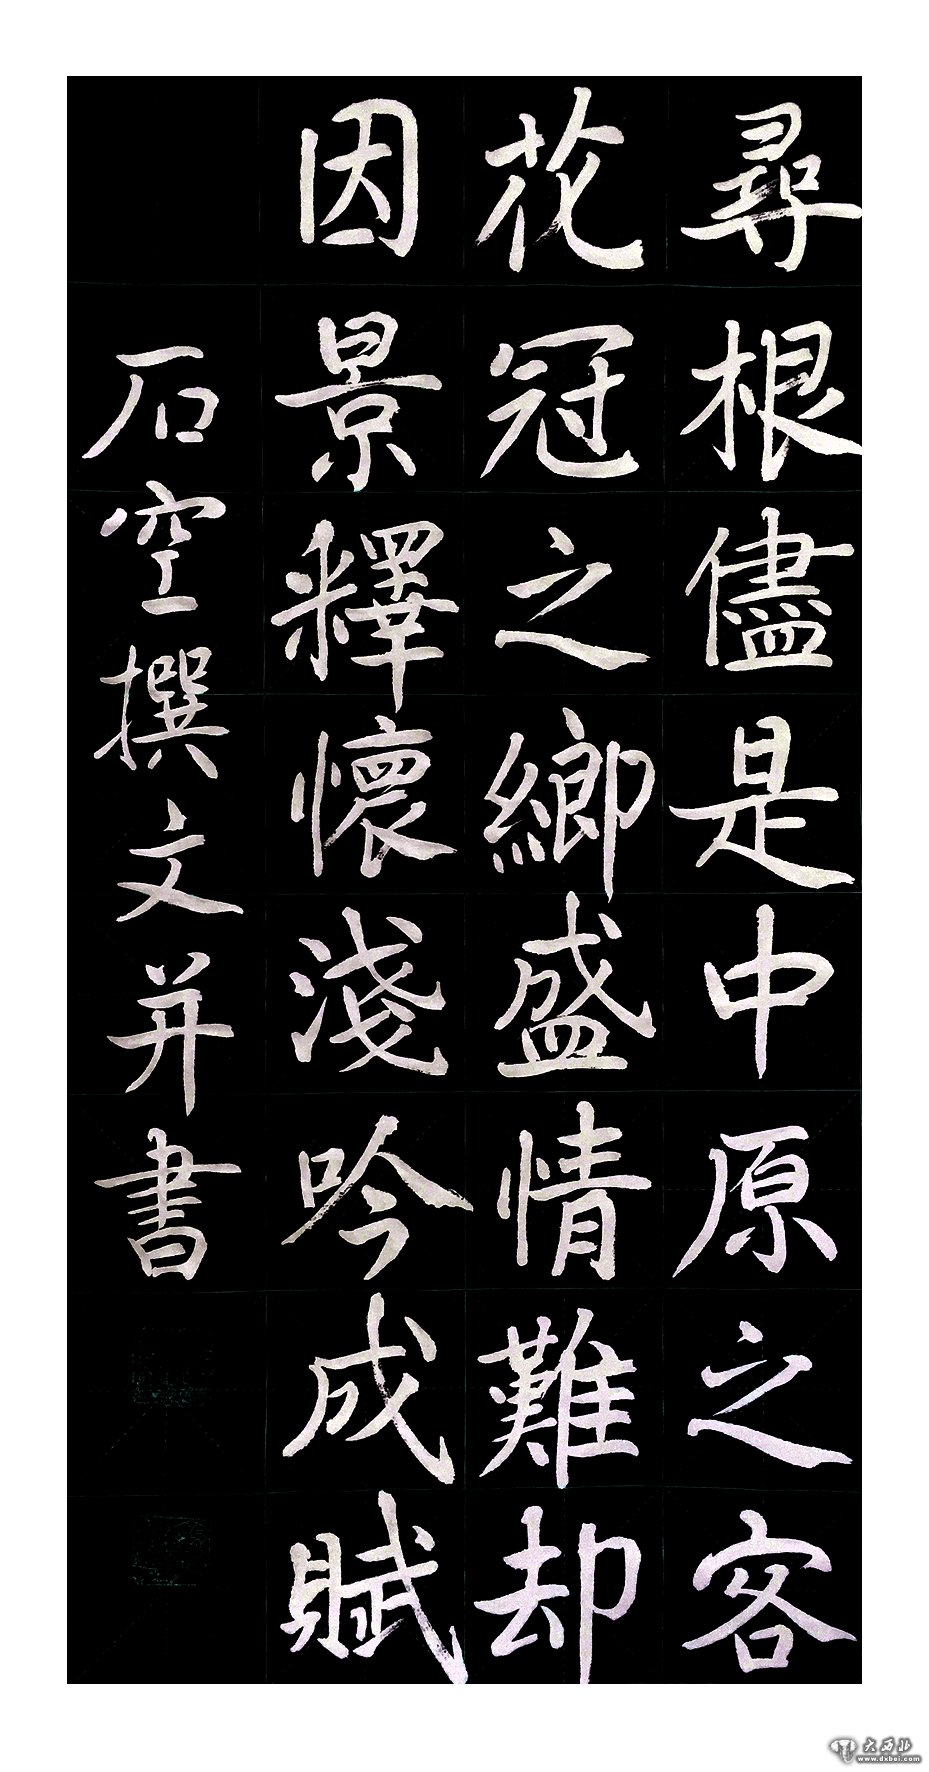 尋根儘是中原之客
花冠之鄉盛情難却
因景釋懷淺吟成賦
石空撰文并書
大西北
www.dxbei.com